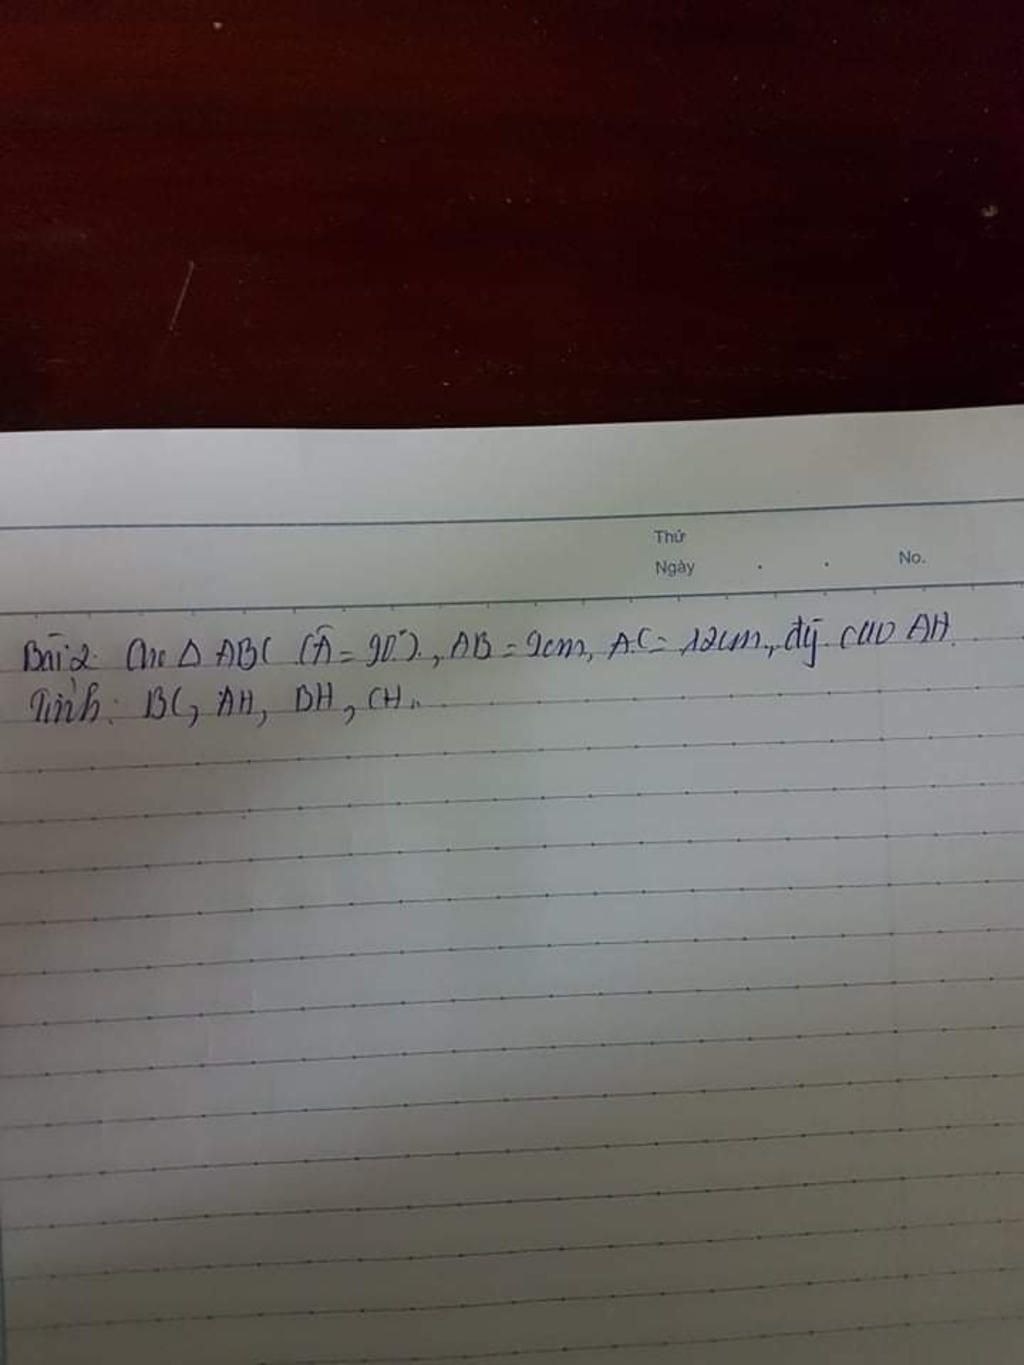 Thứ
Ngày . . No.
Bài 2: Cho Δ ABC (Â = 90°), AB = 9cm, AC = 12cm, đg cao AH.
Tính: BC, AH, BH, CH.